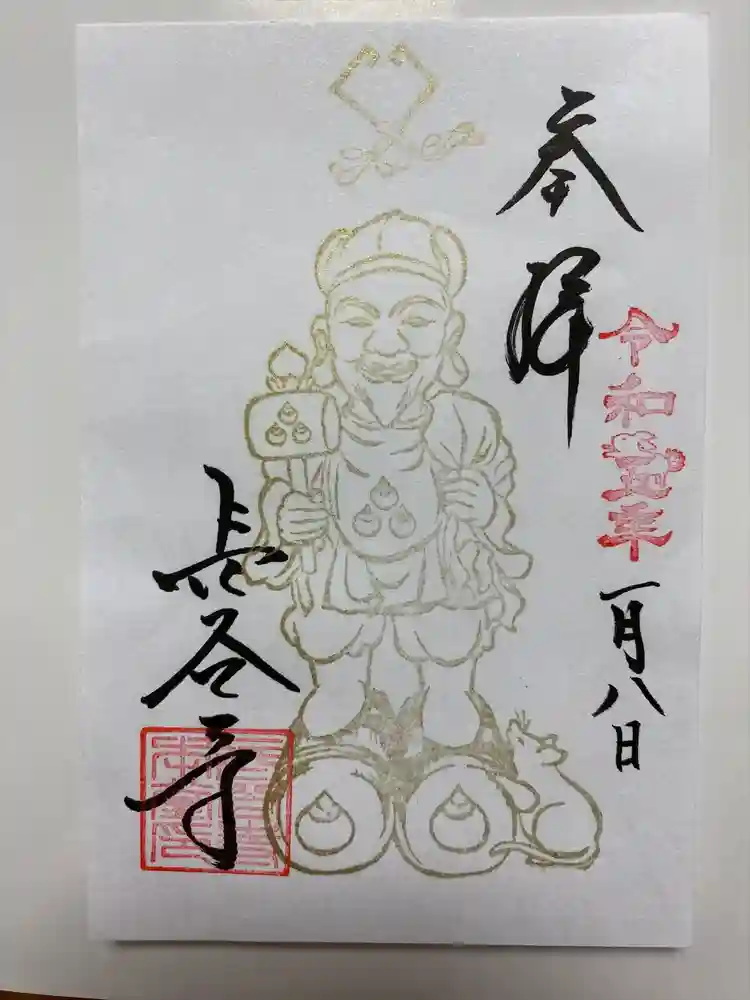 奉拝
令和弐年
一月八日
長谷寺